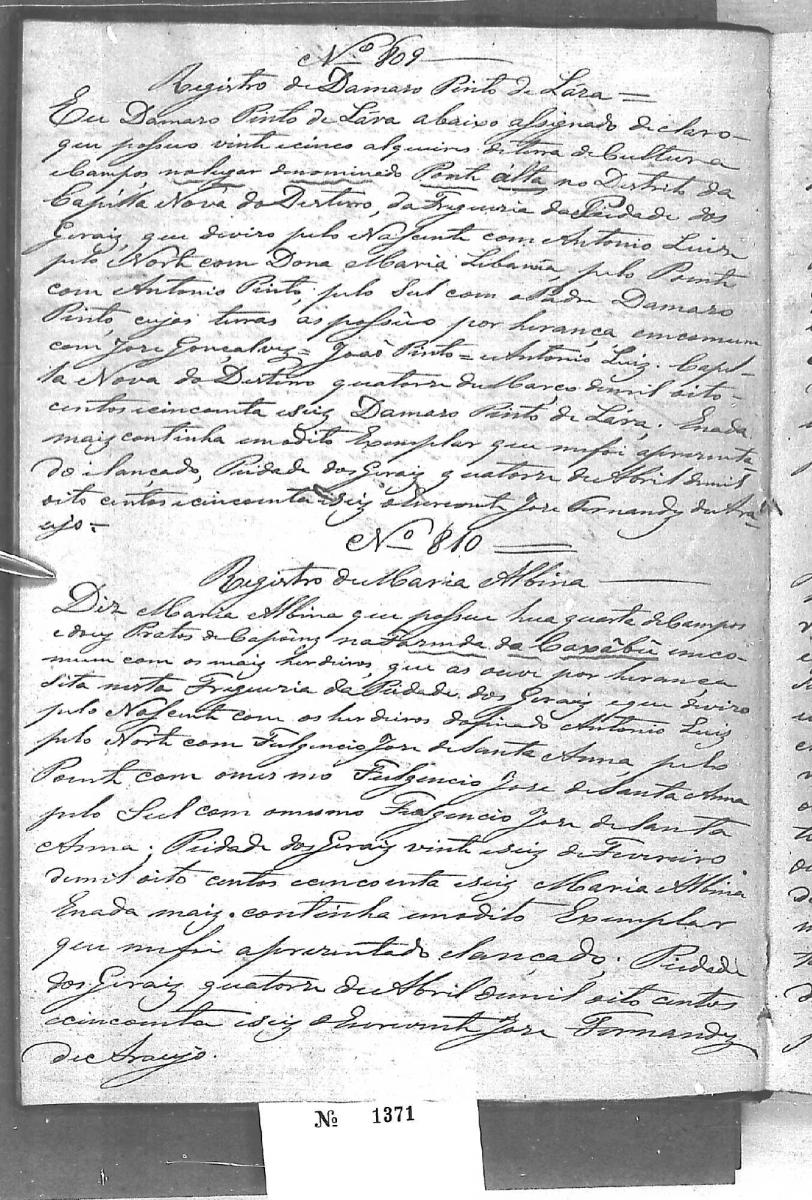 Nº 809
Registro de Damaro Pinto de Lára =
Eu Damaro Pinto de Lára abaixo assignado declaro
que possuo vinte e cinco alqueires de terra de Cultura
e Campos no lugar denominado Ponte álta no Destrito da
Capélla Nova do Desterro, da Freguezia da Piedade dos
Geraiz, que deviro pelo Nascente com Antonio Luiz
pelo Norte com Dona Maria Libania, pelo Poente
com Antonio Pinto, pelo Sul com o Padre Damaro
Pinto, cujas terras as possúo por herança, em comum
com Joze Gonçalvez = João Pinto = e Antonio Luiz. Capel-
la Nova do Desterro quatorze de Março de mil oito
centos e cincoenta e seiz Damaro Pinto de Lára; E nada
maiz continha em o dito Exemplar que me foi aprezenta-
do e lançado, Piedade dos Geraiz quatorze de Abril de mil
oito centos e cincoenta e seiz o Escrevente Joze Fernandz de Ara-
ujo =
Nº 810
Registro de Maria Albina
Diz Maria Albina que possue hua quarta de Campos
e douz Pratos de Capoinz na Fazenda da Caxâbû em co-
mum com os maiz herdeiros, que as ouve por herança
sita nesta Freguezia da Piedade dos Geraiz e que deviro
pelo Nascente com os herdeiros do finado Antonio Luiz
pelo Norte com Fulgencio Joze de Santa Anna, pelo
Poente com o mesmo Fulgencio Joze de Santa Anna
pelo Sul com o mesmo Fulgencio Joze de Santa
Anna; Piedade dos Geraiz vinte e seiz de Fevereiro
de mil oito centos e cincoenta e seiz Maria Albina
E nada maiz continha em o dito Exemplar
que me foi aprezentado e lançado; Piedade
dos Geraiz quatorze de Abril de mil oito centos
e cincoenta e seiz o Escrevente Joze Fernandz
de Araujo.
Nº 1371